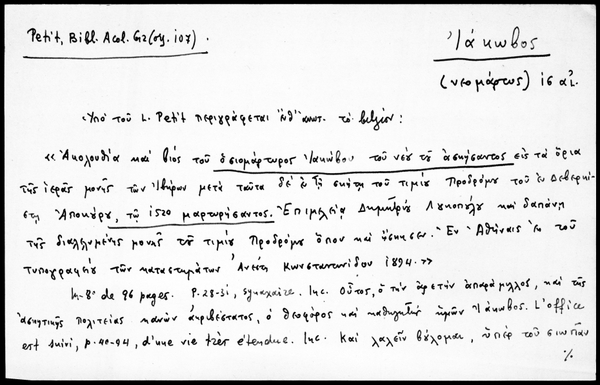 Petit, Bibl. Acol. Gr (σγ. 107).
Ἰάκωβος
(νεομάρτυς) 16 αἰ.
«Ὑπὸ τοῦ L. Petit περιγράφεται ἐνθ' ἀνωτ. τὸ βιβλίον:
«Ἀκολουθία καὶ βίος τοῦ ὁσιομάρτυρος Ἰακώβου τοῦ νέου τοῦ ἀσκήσαντος εἰς τὰ ὅρια
τῆς ἱερᾶς μονῆς τῶν Ἰβήρων μετὰ ταῦτα δὲ ἐν τῇ σκήτῃ τοῦ τιμίου Προδρόμου τοῦ ἐν Δεβερκί-
στῃ Ἀποκόρου, τῷ 1520 μαρτυρήσαντος. Ἐπιμελείᾳ Δημητρίου Λουκοπούλου καὶ δαπάνῃ
τῆς διαλελυμένης μονῆς τοῦ τιμίου Προδρόμου ὅπου καὶ ἤσκησεν. Ἐν Ἀθήναις ἐκ τοῦ
τυπογραφείου τῶν καταστημάτων Ἀνέστη Κωνσταντινίδου 1894.»
In-8° de 96 pages. P. 28-31, synaxaire. Inc. Οὗτος, ὁ τὴν ἀρετὴν ἀπαράμιλλος, καὶ τῆς
ἀσκητικῆς πολιτείας κανὼν ἀκριβέστατος, ὁ θεοφόρος καὶ καθηγητὴς ἡμῶν Ἰάκωβος. L'office
est suivi, p. 40-94, d'une vie très étendue. Inc. Καὶ λαλεῖν βούλομαι, ὑπὲρ τοῦ σιωπᾶν
%